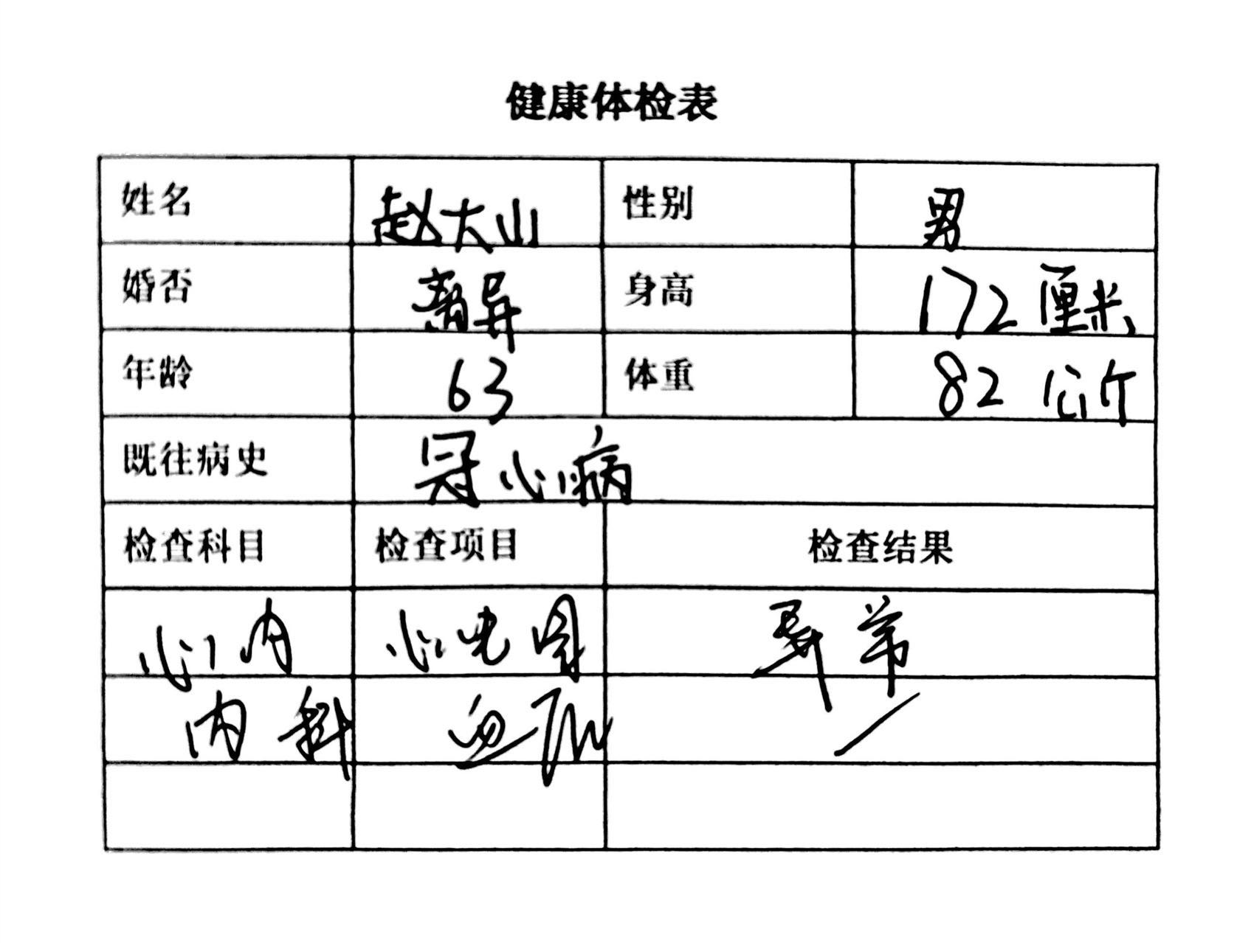 健康体检表
姓名 赵大山 性别 男
婚否 离异 身高 172 厘米
年龄 63 体重 82 公斤
既往病史 冠心病
检查科目 检查项目 检查结果
心内 心电图 异常
内科 血压 /